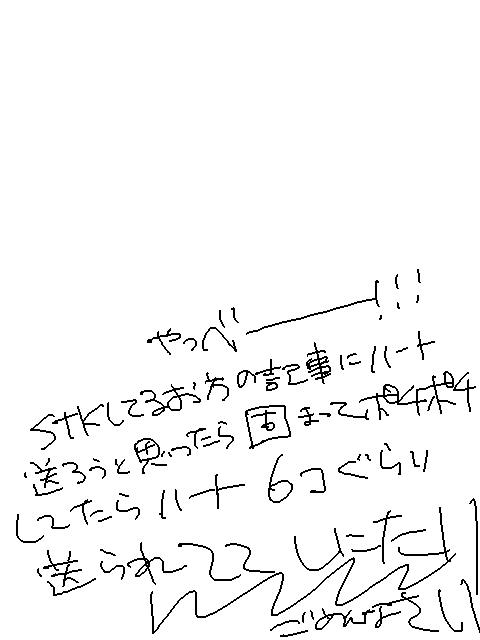 やっべ――!!!
STKしてるお方の記事にハート
送ろうと思ったら固まってポチポチ
してたらハート6コぐらい
送られてて
しにたい
ごめんなさい